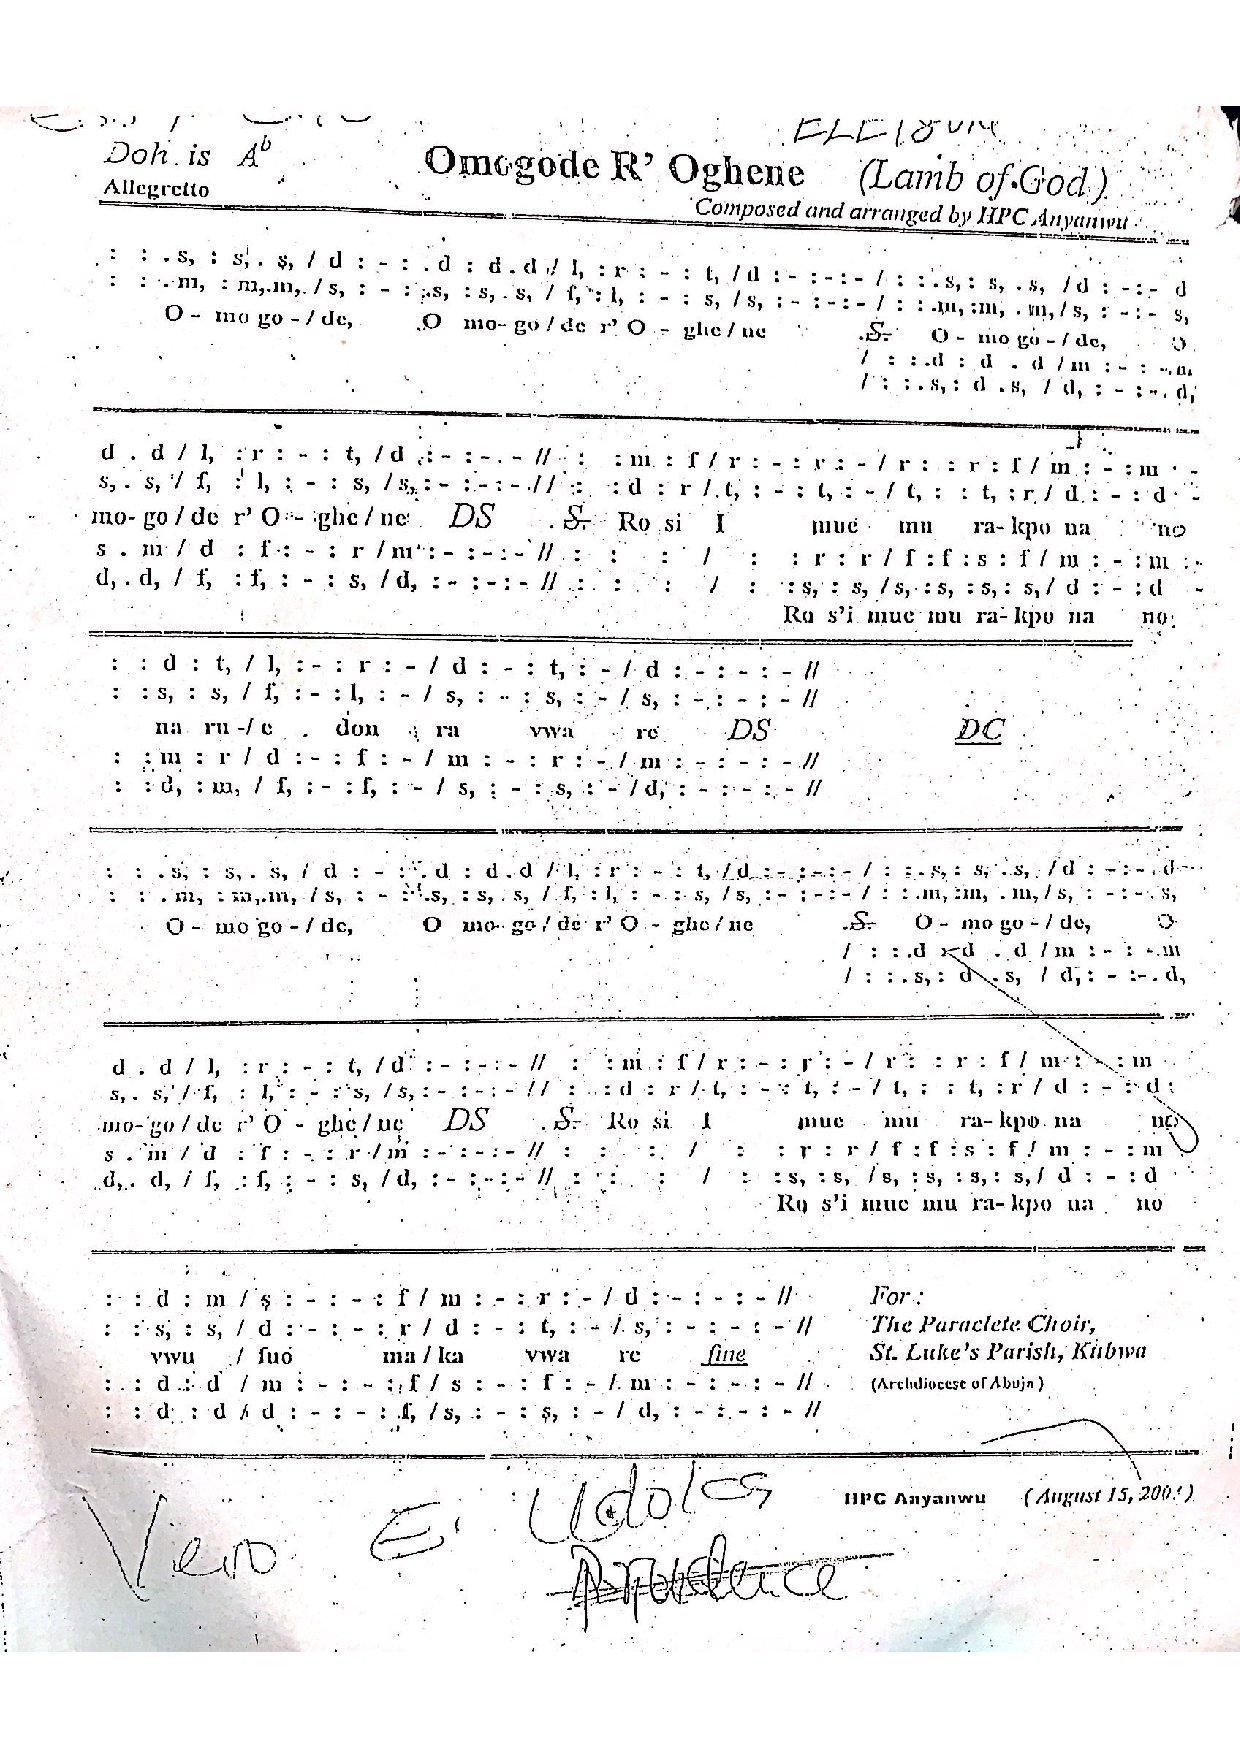 Doh is A♭
Omogode R' Oghene (Lamb of God)
Allegretto
Composed and arranged by HPC Anyanwu
: : .s, : s, . s, / d : - : .d : d.d / l, : r : - : t, / d : - : - : - / : : .s, : s, .s, / d : - : - d
: : .m, : m,.m, / s, : - : .s, : s, . s, / f, : l, : - : s, / s, : - : - : - / : : .m, : m, .m, / s, : - : - s,
O - mo go - / de, O mo- go / de r' O - ghe / ne .S. O - mo go - / de, O
/ : : .d : d . d / m : - : - .m
/ : : .s, : d .s, / d, : - : - . d,
d . d / l, : r : - : t, / d : - : - . - // : : m : f / r : - : r : - / r : : r : f / m : - : m -
s, . s, / f, : l, : - : s, / s, : - : - : - // : : d : r / t, : - : t, : - / t, : : t, : r / d : - : d -
mo- go / de r' O - ghe / ne DS .S. Ro si I mue mu ra- kpo na no
s . m / d : f : - : r / m : - : - : - // : : : / : : r : r / f : f : s : f / m : - : m : -
d, . d, / f, : f, : - : s, / d, : - : - : - // : : : / : : s, : s, / s, : s, : s, : s, / d : - : d -
Ro s'i mue mu ra- kpo na no
: : d : t, / l, : - : r : - / d : - : t, : - / d : - : - : - //
: : s, : s, / f, : - : l, : - / s, : - : s, : - / s, : - : - : - //
na ru -/ e don ra vwa re DS DC
: : m : r / d : - : f : - / m : - : r : - / m : - : - : - //
: : d, : m, / f, : - : f, : - / s, : - : s, : - / d, : - : - : - //
: : .s, : s, . s, / d : - : .d : d.d / l, : r : - : t, / d : - : - : - / : : .s, : s, .s, / d : - : - .d
: : .m, : m,.m, / s, : - : .s, : s, . s, / f, : l, : - : s, / s, : - : - : - / : : .m, : m, .m, / s, : - : - . s,
O - mo go - / de, O mo- go / de r' O - ghe / ne .S. O - mo go - / de, O
/ : : .d : d . d / m : - : - .m
/ : : .s, : d . s, / d, : - : - . d,
d . d / l, : r : - : t, / d : - : - : - // : : m : f / r : - : r : - / r : : r : f / m : - : m
s, . s, / f, : l, : - : s, / s, : - : - : - // : : d : r / t, : - : t, : - / t, : : t, : r / d : - : d
mo- go / de r' O - ghe / ne DS .S. Ro si I mue mu ra- kpo na no
s . m / d : f : - : r / m : - : - : - // : : : / : : r : r / f : f : s : f / m : - : m
d, . d, / f, : f, : - : s, / d, : - : - : - // : : : / : : s, : s, / s, : s, : s, : s, / d : - : d
Ro s'i mue mu ra- kpo na no
: : d : m / s : - : - : f / m : - : r : - / d : - : - : - //
: : s, : s, / d : - : - : r / d : - : t, : - / s, : - : - : - //
vwu / fuo ma / ka vwa re fine
: : d : d / m : - : - : f / s : - : f : - / m : - : - : - //
: : d : d / d : - : - : f, / s, : - : s, : - / d, : - : - : - //
For :
The Paraclete Choir,
St. Luke's Parish, Kubwa
(Archdiocese of Abuja)
HPC Anyanwu (August 15,
Vero E. Udoka